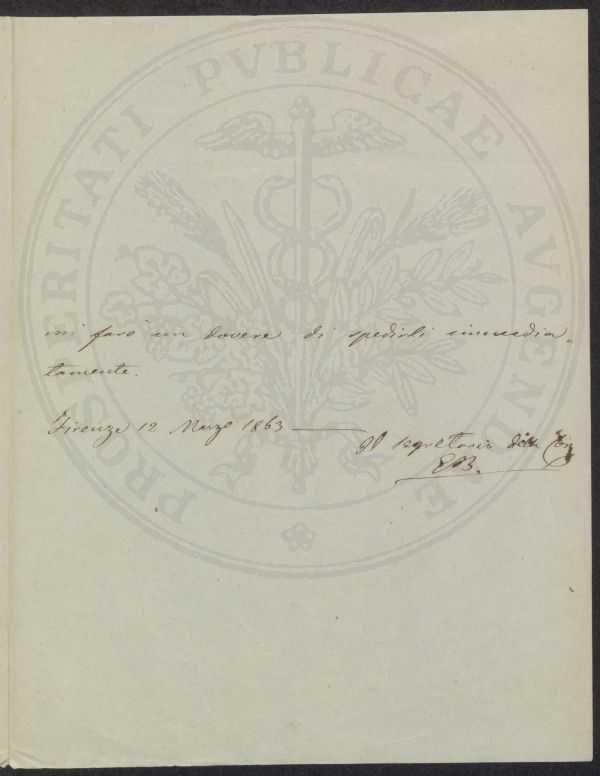 PROSPERITATI PVBLICAE AVGENDAE
mi farò un dovere di spedirli immedia-
tamente.
Firenze 12 Marzo 1863
Il segretario
EB.